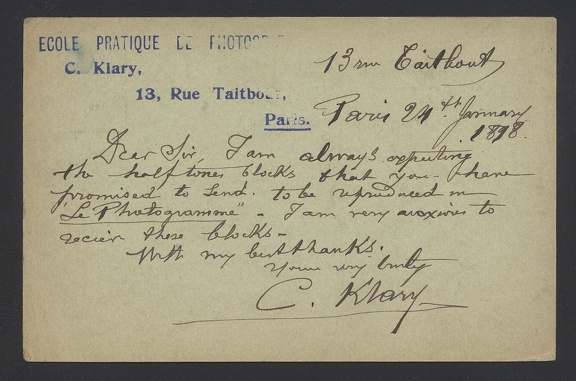 ECOLE PRATIQUE DE PHOTOGR
C. Klary,
13, Rue Taitbout,
Paris.
13 rue Taitbout
Paris 24th January
1898.
Dear Sir, I am always expecting
the half tones blocks that you have
promised to send. to be reproduced in
"Le Photogramme" - I am very anxious to
recieir these blocks -
With my best thanks.
Yours very truly
C. Klary